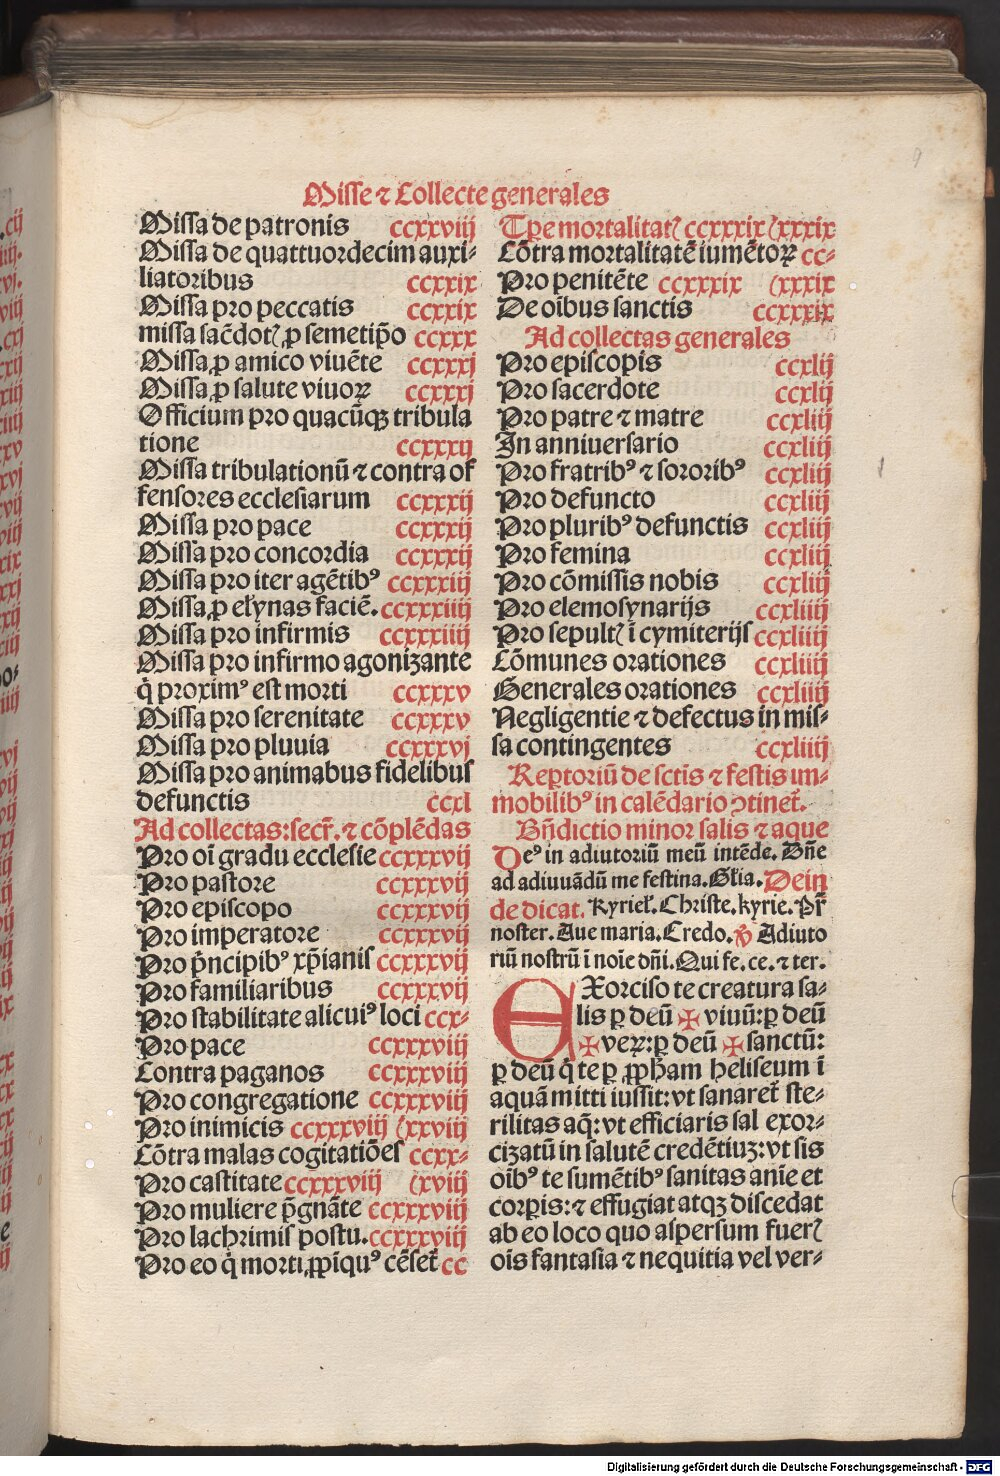 Misse ⁊ Collecte generales
Missa de patronis ccxxviij
Missa de quattuordecim auxi-
liatoribus ccxxix
Missa pro peccatis ccxxix
missa sac̄dotꝭ ꝓ semetip̄o ccxxx
Missa ꝓ amico viuēte ccxxxj
Missa ꝓ salute viuoꝝ ccxxxj
Officium pro quacūqꝫ tribula
tione ccxxxij
Missa tribulationū ⁊ contra of
fensores ecclesiarum ccxxxij
Missa pro pace ccxxxij
Missa pro concordia ccxxxij
Missa pro iter agētibꝰ ccxxxiij
Missa ꝓ elꝰynas faciē. ccxxxiiij
Missa pro infirmis ccxxxiiij
Missa pro infirmo agonizante
q̇ proximꝰ est morti ccxxxv
Missa pro serenitate ccxxxv
Missa pro pluuia ccxxxvj
Missa pro animabus fidelibus
defunctis ccxl
Ad collectas: secr̄. ⁊ cōplēdas
Pro oī gradu ecclesie ccxxxvij
Pro pastore ccxxxvij
Pro episcopo ccxxxvij
Pro imperatore ccxxxvij
Pro p̄ncipibꝰ xp̄ianis ccxxxvij
Pro familiaribus ccxxxvij
Pro stabilitate alicuiꝰ loci ccx-
Pro pace ccxxxviij
Contra paganos ccxxxviij
Pro congregatione ccxxxviij
Pro inimicis ccxxxviij (xxviij
Cōtra malas cogitatiōes ccxx-
Pro castitate ccxxxviij (xviij
Pro muliere p̄gnāte ccxxxviij
Pro lachrimis postu. ccxxxviij
Pro eo q̇ morti ꝓpīquꝰ cēset̄ cc
Tp̄e mortalitatꝭ ccxxxix (xxxix
Cōtra mortalitatē iumētoꝝ cc-
Pro penitēte ccxxxix (xxxix
De oībus sanctis ccxxxix
Ad collectas generales
Pro episcopis ccxlij
Pro sacerdote ccxlij
Pro patre ⁊ matre ccxliij
In anniuersario ccxliij
Pro fratribꝰ ⁊ sororibꝰ ccxliij
Pro defuncto ccxliij
Pro pluribꝰ defunctis ccxliij
Pro femina ccxliij
Pro cōmissis nobis ccxliij
Pro elemosynarijs ccxliiij
Pro sepultꝭ ī cymiterijs ccxliiij
Cōmunes orationes ccxliiij
Generales orationes ccxliiij
Negligentie ⁊ defectus in mis-
sa contingentes ccxliiij
Rep̱toriū de sctīs ⁊ festis im-
mobilibꝰ in calēdario ꝯtinet̄.
Bn̄dictio minor salis ⁊ aque
Deꝰ in adiutoriū meū intēde. Dn̄e
ad adiuuādū me festina. Gl̄ia. Dein
de dicat. Kyriel̄. Christe. kyrie. Pr̄
noster. Aue maria. Credo. ℣ Adiuto
riū nostrū ī noīe dn̄i. Qui fe. ce. ⁊ ter.
EXorciso te creatura sa-
lis ꝑ deū ✠ viuū: ꝑ deū
✠ veꝝ: ꝑ deū ✠ sanctū:
ꝑ deū q̇ te ꝑ ꝓph̄am heliseum ī
aquā mitti iussit: vt sanaret̄ ste-
rilitas aq̄: vt efficiaris sal exor-
cizatū in salutē credētiuꝫ: vt sis
oībꝰ te sumētibꝰ sanitas anīe et
corꝑis: ⁊ effugiat atqꝫ discedat
ab eo loco quo aspersum fuerꝭ
oīs fantasia ⁊ nequitia vel ver-
Digitalisierung gefördert durch die Deutsche Forschungsgemeinschaft - DFG